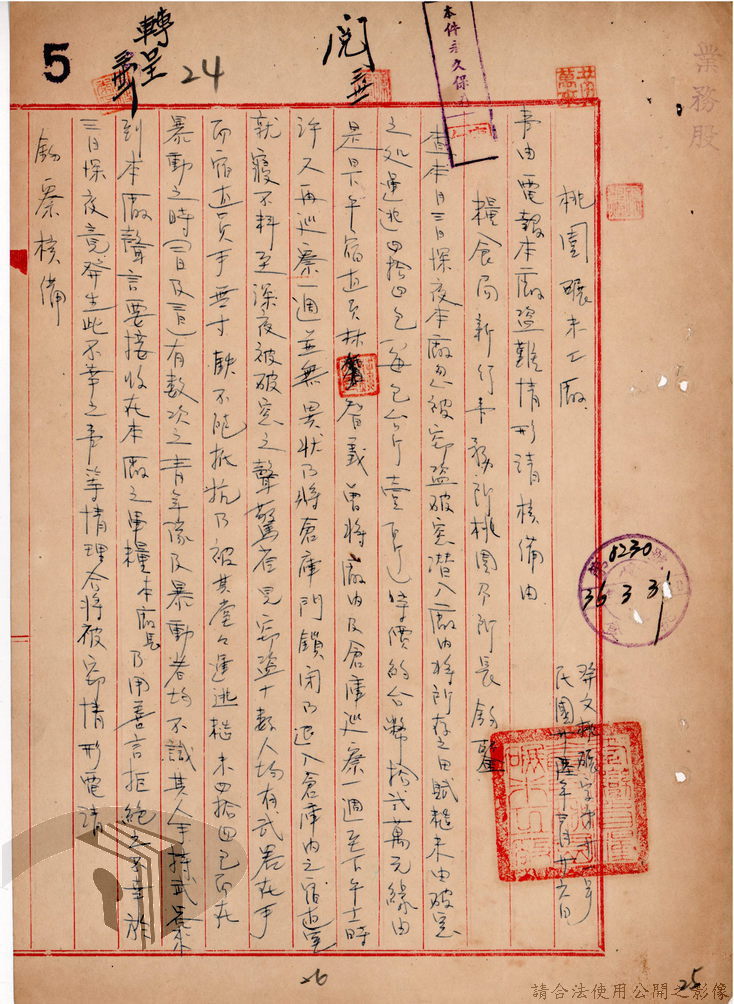 業務股
本件永久保存
5
轉呈
24
閱
桃園碾米工廠
發文桃碾字第十一號
民國卅陸年三月廿六日
事由電報本廠盜難情形請核備由
糧食局新竹事務所桃園分所長鈞鑒
查本月三日深夜本廠忽被竊盜破室潛入廠內將所存之田賦糙米由破室
之処運逃四拾四包(每包公斤壹百斤)時價約台幣拾弍萬元緣由
是日下午宿直員林智義曾將廠內及倉庫巡察一週至下午十一時
許又再巡察一週並無異狀乃將倉庫門鎖閉乃退入倉庫內之宿直室
就寢不料至深夜被破室之聲驚奮見竊盜十數人均有武器在手
而宿直員手無寸鉄不能抵抗乃被其堂々運逃糙米四拾四包而在
暴動之時一日及二日有數次之青年隊及暴動者均不識其人手持武器
到本廠聲言要接收在本廠之軍糧本廠長乃用善言拒絕之不幸於
三日深夜竟發生此不幸之事等情理合將被竊情形電請
鈞察核備
0230
36 3 31
26
25
請合法使用公開之影像